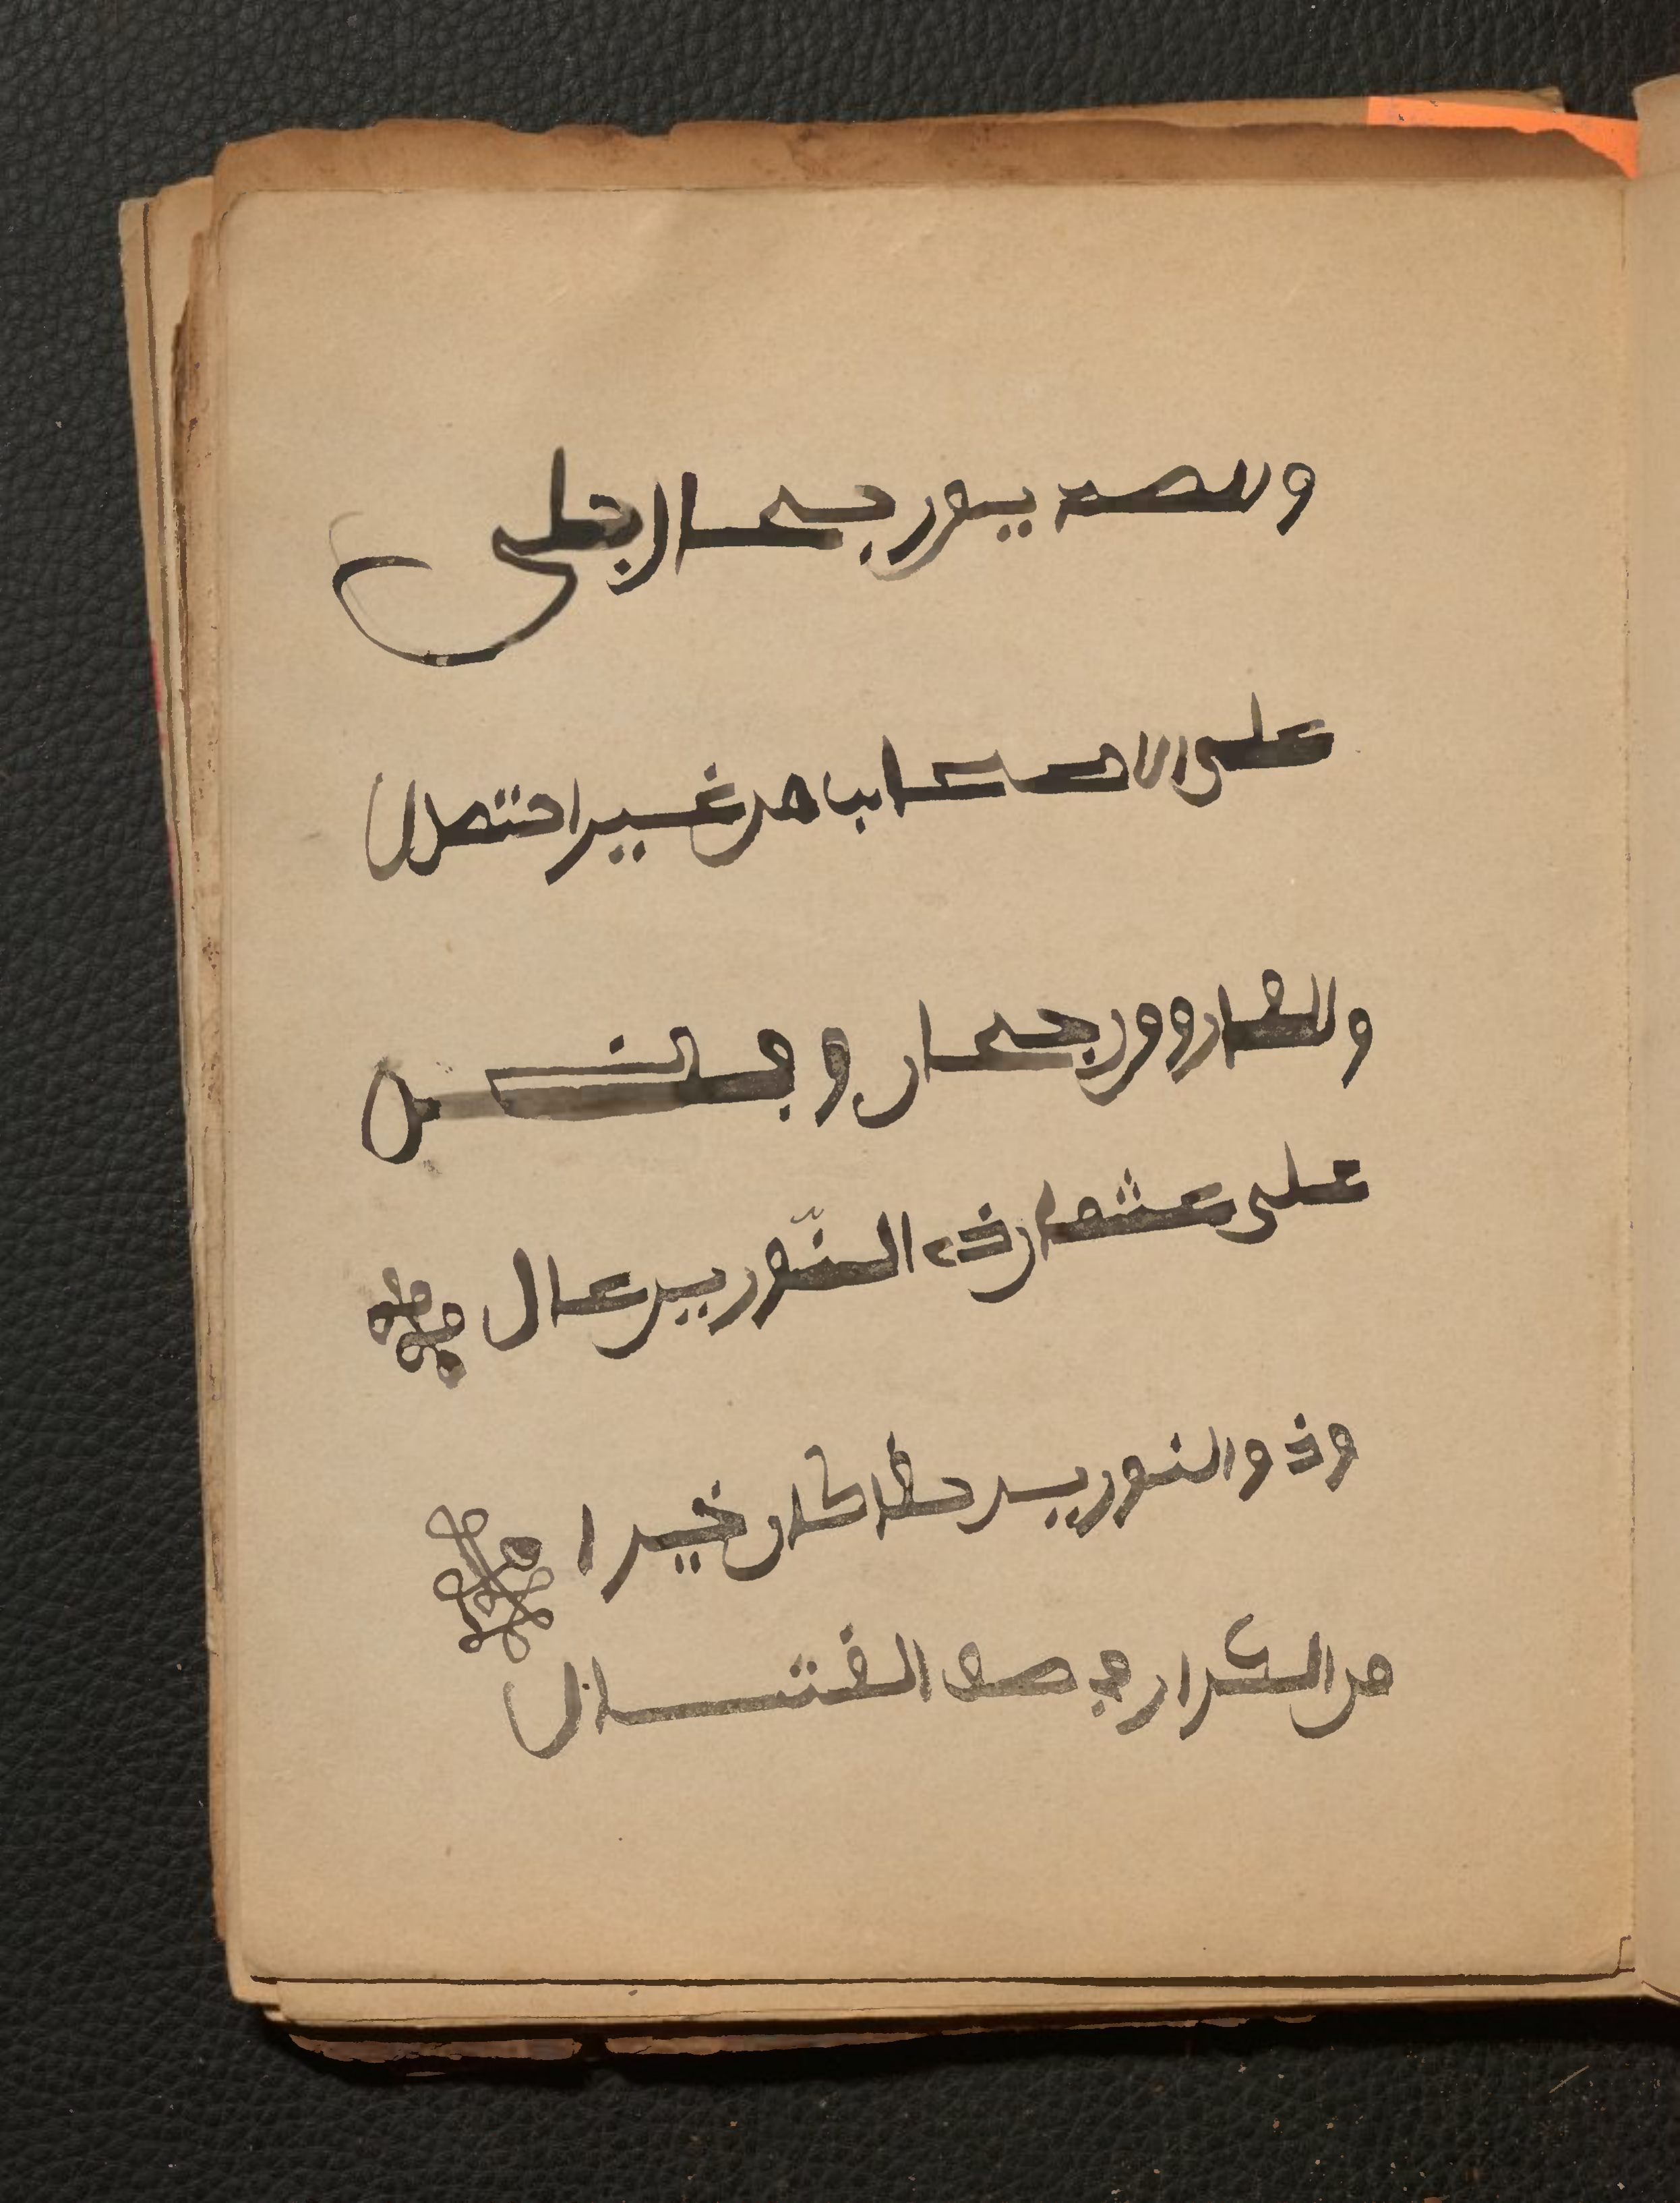 وللصديق رجحان جلي
على الاصحاب من غير احتمال
وللفاروق رجحان وفضل
على عثمان ذي النّورين عال
وذو النورين حقا كان خيرا
من الكرار في صف القتال